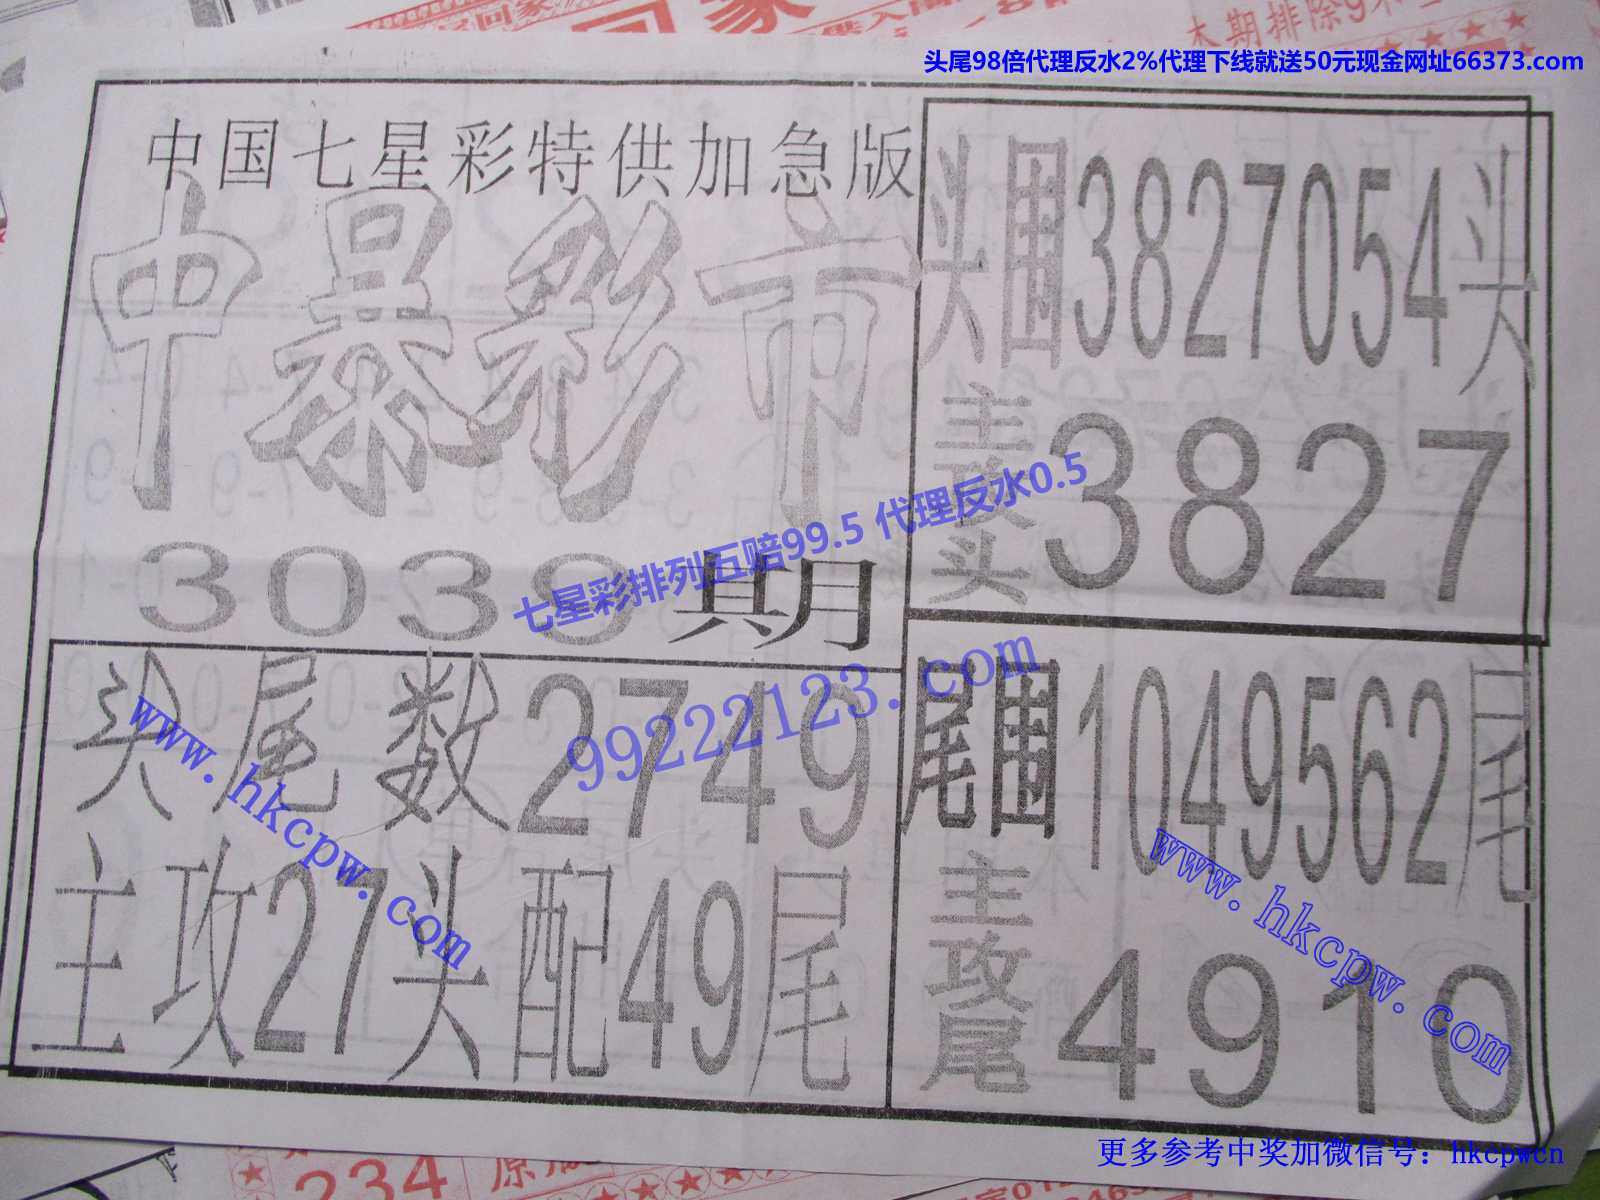 本期排除9
头尾98倍代理反水2%代理下线就送50元现金网址66373.com
中国七星彩特供加急版
中暴彩市
3038期
头围3827054头
主攻头3827
七星彩排列五赔99.5 代理反水0.5
99222123.com
头尾数2749
主攻27头配49尾
www.hkcpw.com
尾围1049562尾
主攻尾4910
www.hkcpw.com
更多参考中奖加微信号：hkcpwcn
234